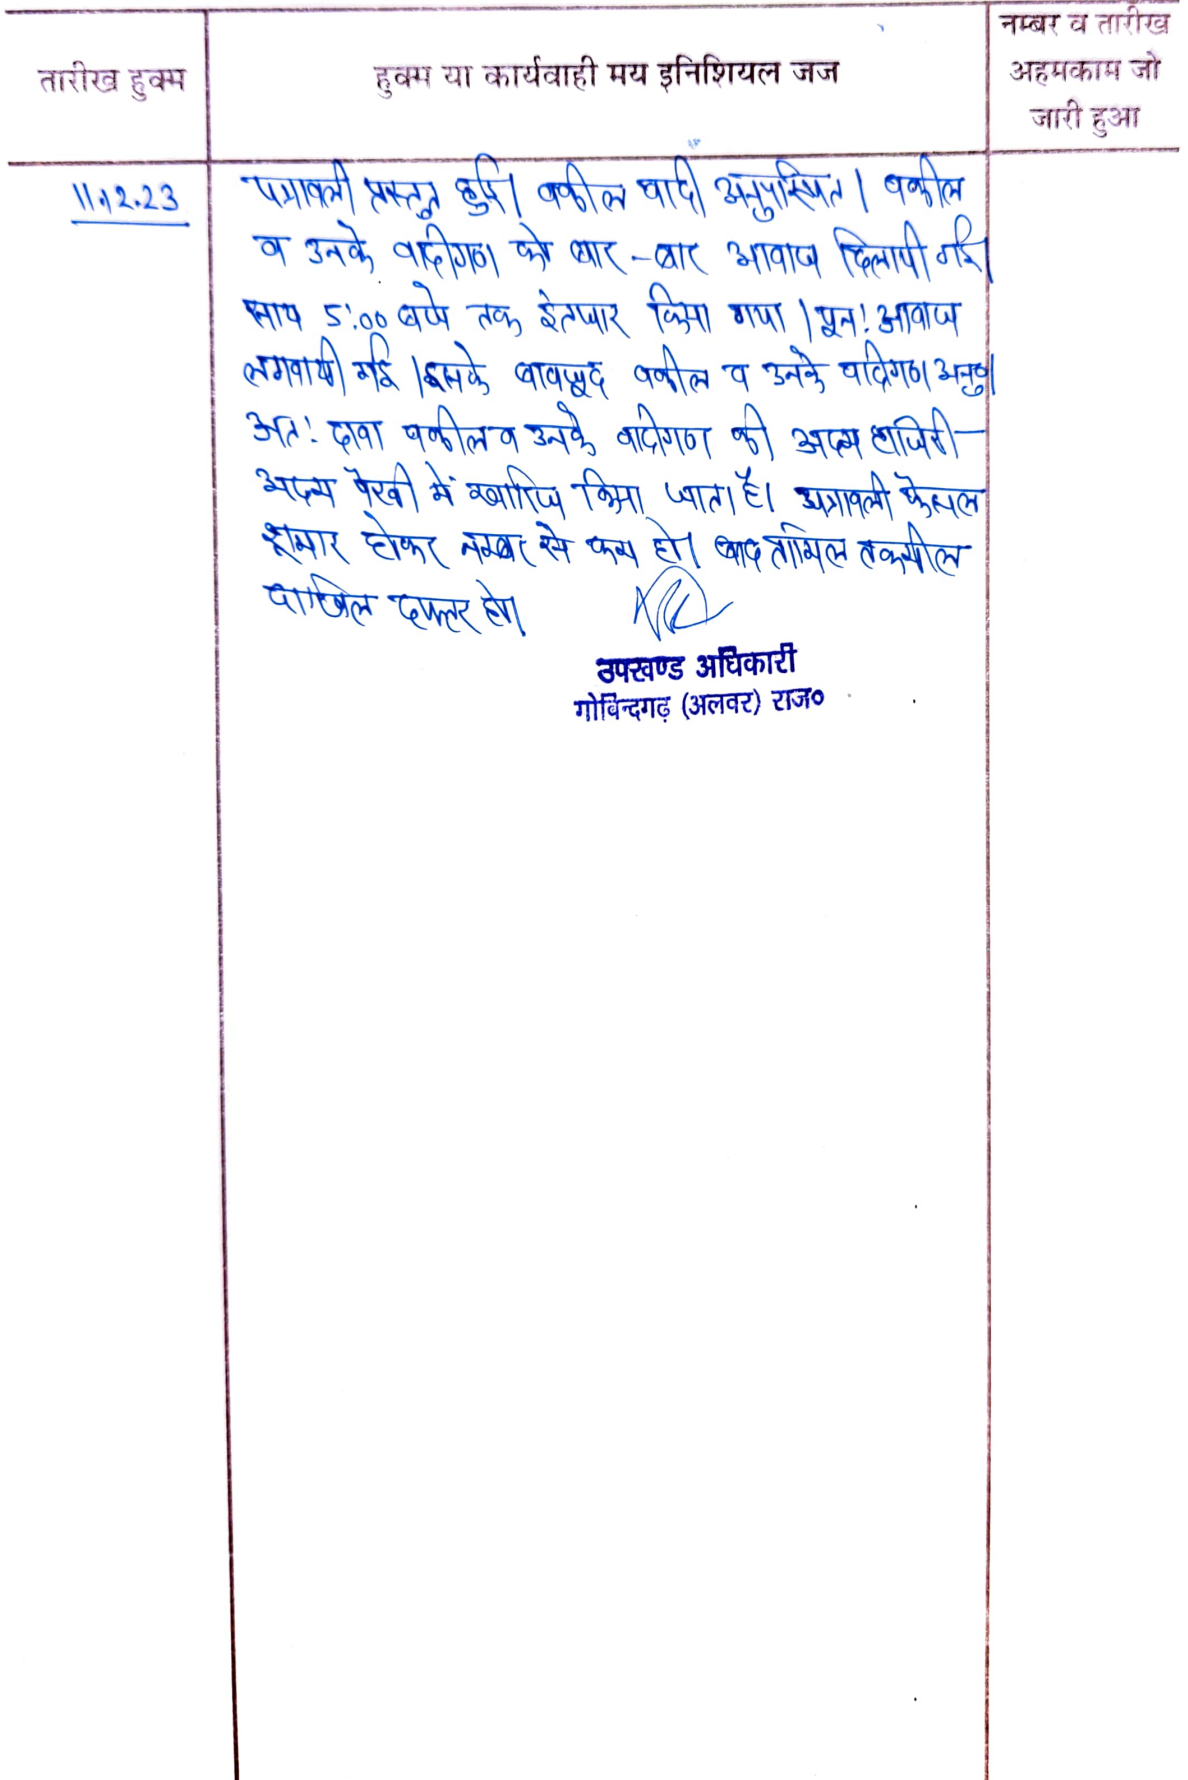 तारीख हुक्म
हुक्म या कार्यवाही मय इनिशियल जज
नम्बर व तारीख
अहमकाम जो
जारी हुआ
11.12.23
पत्रावली प्रस्तुत हुई। वकील वादी अनुपस्थित। वकील
व उनके वादीगण को बार-बार आवाज दिलायी गई।
साय 5:00 बजे तक इंतजार किया गया। पुन: आवाज
लगवायी गई। इसके बावजूद वकील व उनके वादीगण अनुप।
अत: दावा वकील व उनके वादीगण की अदम हाजिरी
अदम पैरवी में खारिज किया जाता है। पत्रावली फैसल
शूमार होकर नम्बर से कम हो। बाद तामिल तकमील
दाखिल दफ्तर हो।
उपखण्ड अधिकारी
गोविन्दगढ़ (अलवर) राज०